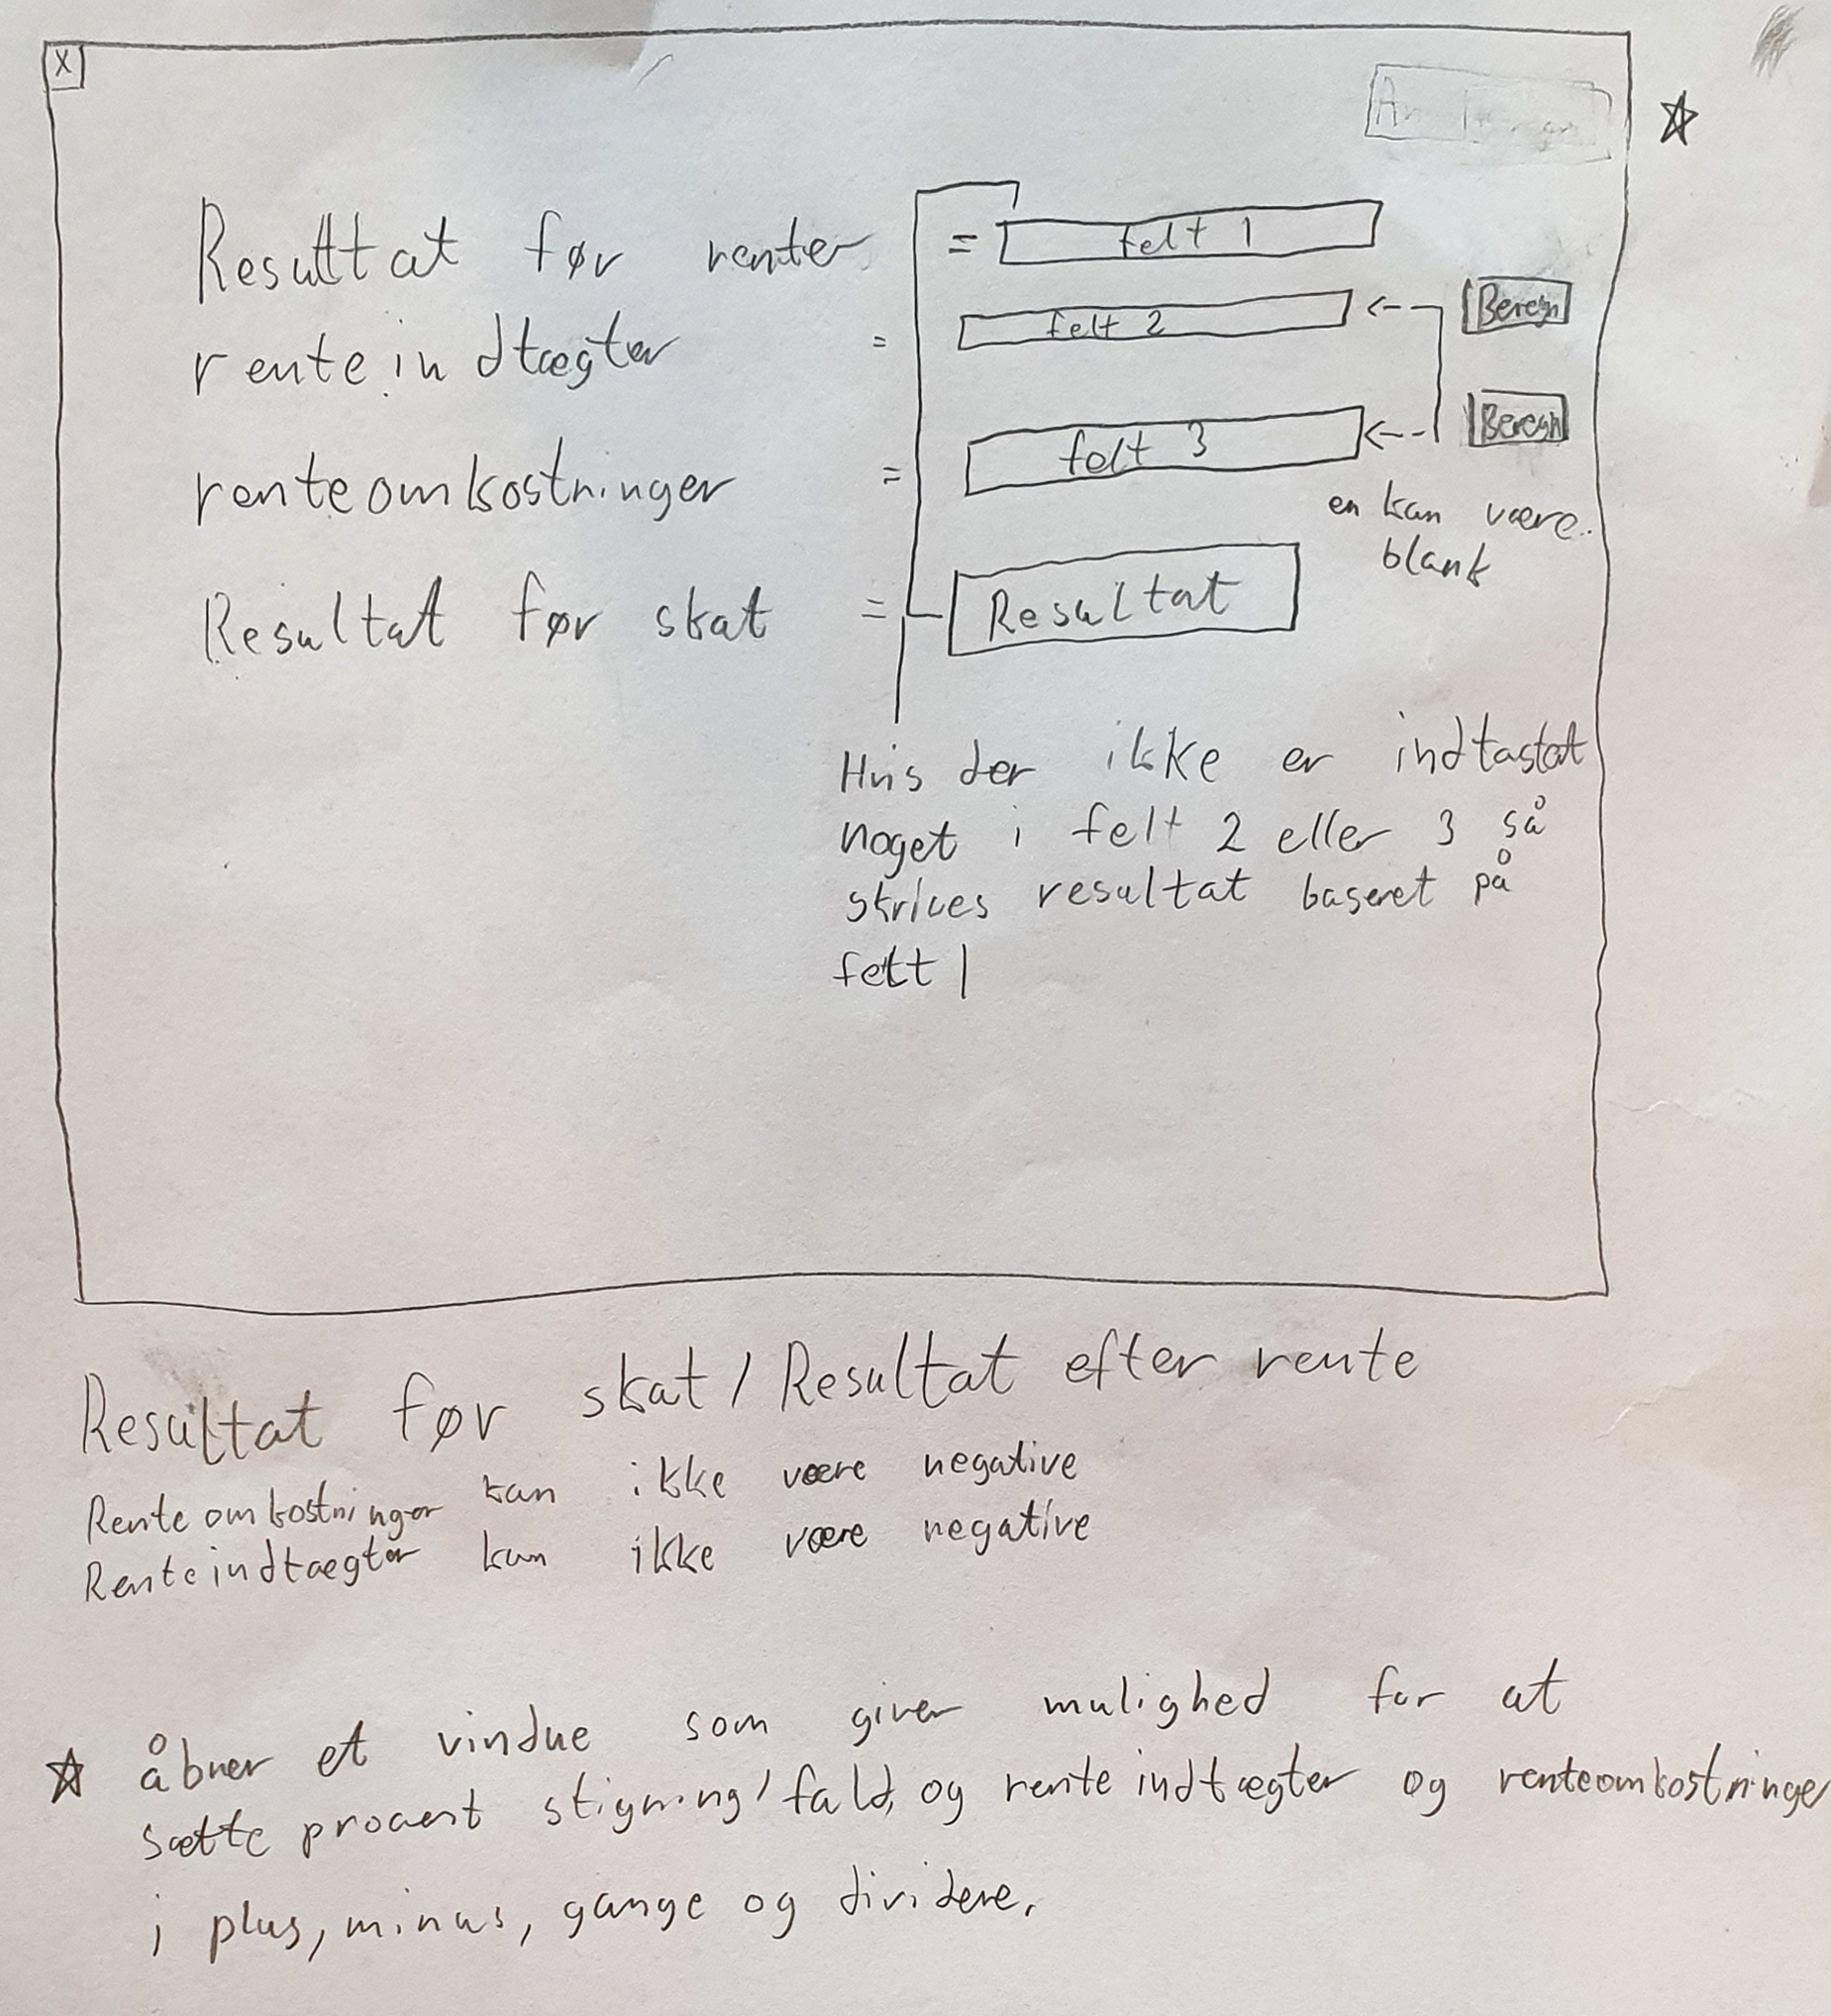 X
Resultat før renter = felt 1
renteindtægter = felt 2 Beregn
renteomkostninger = felt 3 Beregn
en kan være
blank
Resultat før skat = Resultat
Hvis der ikke er indtastet
noget i felt 2 eller 3 så
skrives resultat baseret på
felt 1
Resultat før skat / Resultat efter rente
Rente omkostninger kan ikke være negative
Renteindtægter kan ikke være negative
☆ åbner et vindue som giver mulighed for at
sætte procent stigning/fald, og renteindtægter og renteomkostninger
i plus, minus, gange og dividere.